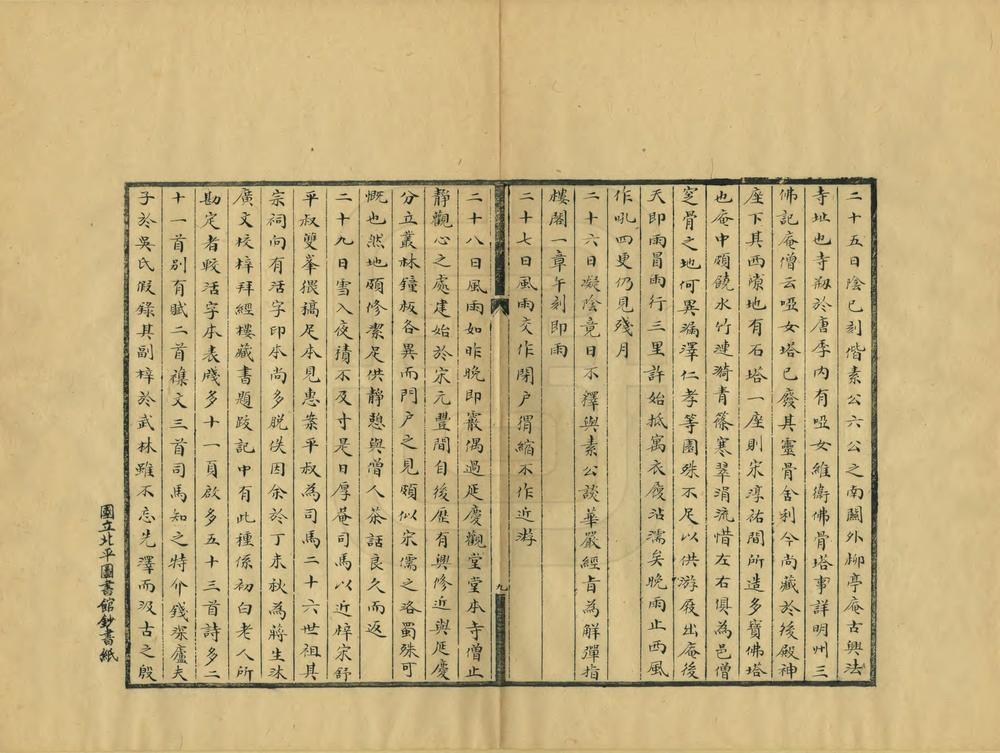 二十五日陰巳刻偕素公六公之南關外柳亭庵古興法
寺址也寺剏於唐季内有啞女維衛佛骨塔事詳明州三
佛記庵僧云啞女塔已廢其靈骨舍利今尚藏於後殿神
座下其西隙地有石塔一座則宋淳祐間所造多寶佛塔
也庵中頗饒水竹漣漪青篠寒翠涓流惜左右俱為邑僧
窆骨之地何異漏澤仁孝等園殊不足以供游屐出庵後
天即雨冒雨行三里許始抵寓衣履沾濡矣晚雨止西風
作吼四更仍見殘月
二十六日凝陰竟日不釋與素公談華嚴經旨為解彈指
樓閣一章午刻即雨
二十七日風雨交作閉户蝟縮不作近游
九
二十八日風雨如昨晚即霰偶過延慶觀堂堂本寺僧止
靜觀心之處建始於宋元豐間自後歷有興修近與延慶
分立叢林鐘板各異而門户之見頗似宋儒之洛蜀殊可
慨也然地頗修潔足供靜憩與僧人茶話良久而返
二十九日雪入夜猶不及寸是日厚菴司馬以近梓宋舒
平叔雙峯猥稿足本見惠案平叔為司馬二十六世祖其
宗祠向有活字印本尚多脱佚因余於丁未秋為蔣生沐
廣文校梓拜經樓藏書題跋記中有此種係初白老人所
勘定者較活字本表牋多十一頁啟多五十三首詩多二
十一首别有賦二首襍文三首司馬知之特介錢深廬夫
子於吳氏假錄其副梓於武林雖不忘先澤而汲古之殷
國立北平圖書館鈔書紙